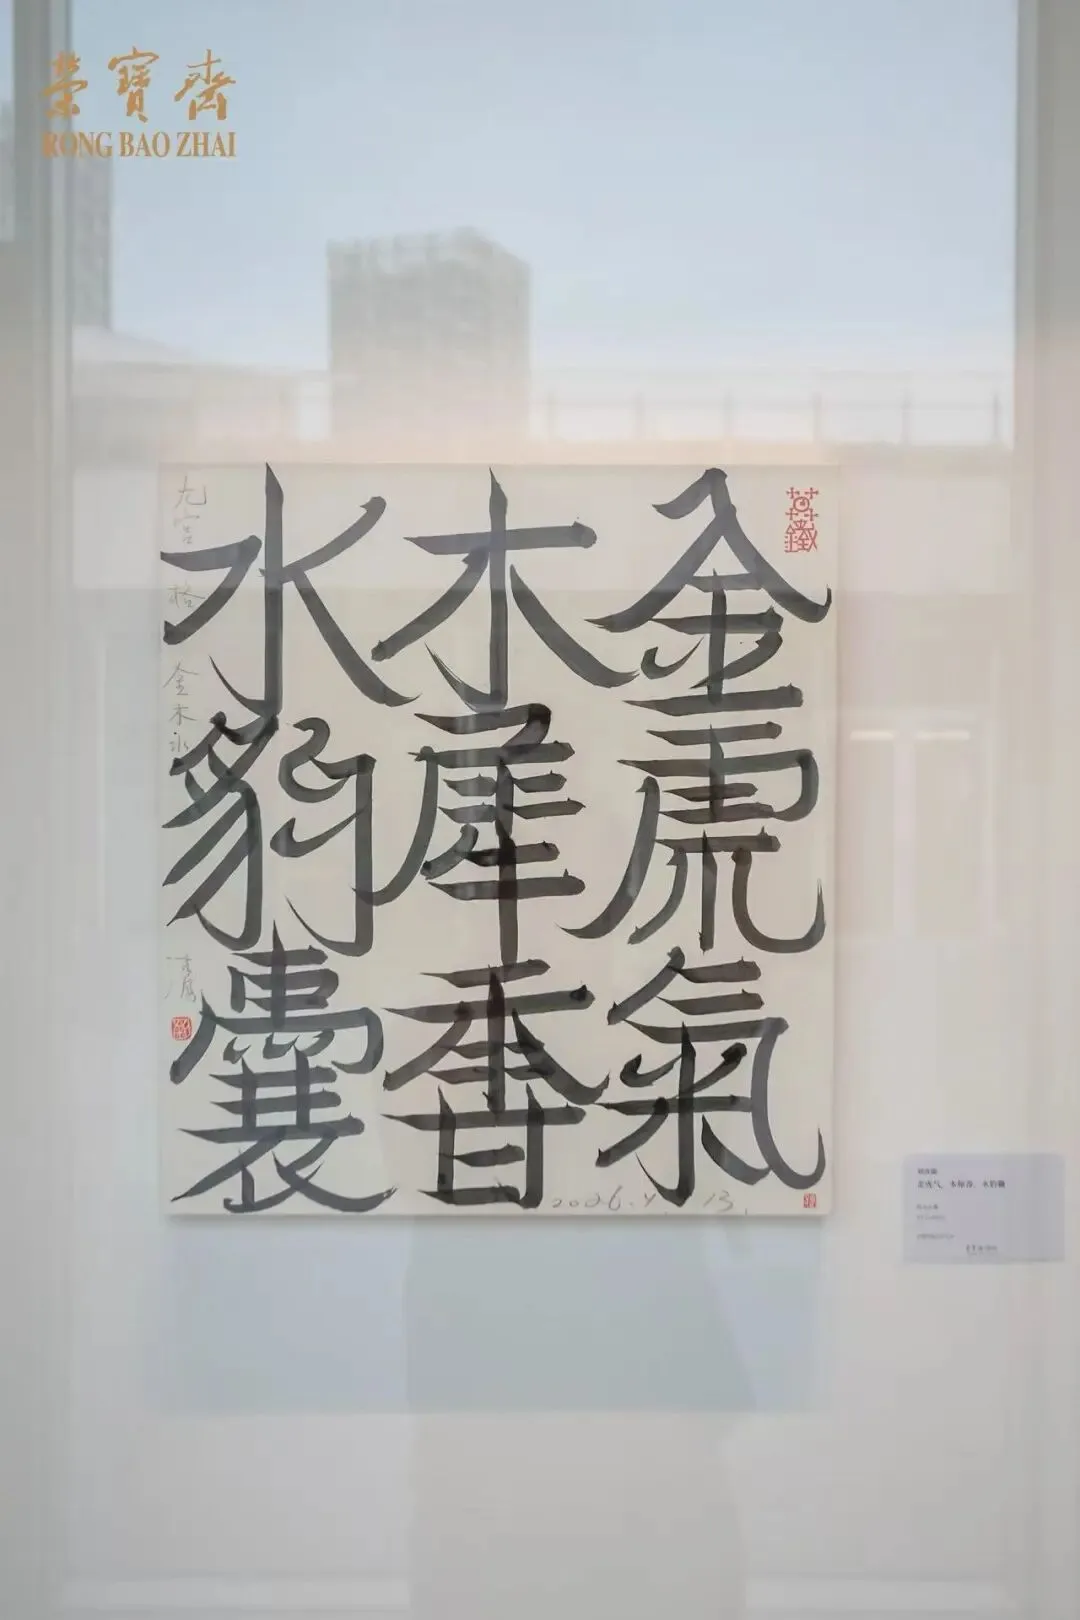 榮寶齋
RONG BAO ZHAI
金虎氣
木犀香
水豹囊
九宫格 金木水
2026.4.13.
金虎气、木犀香、水豹囊